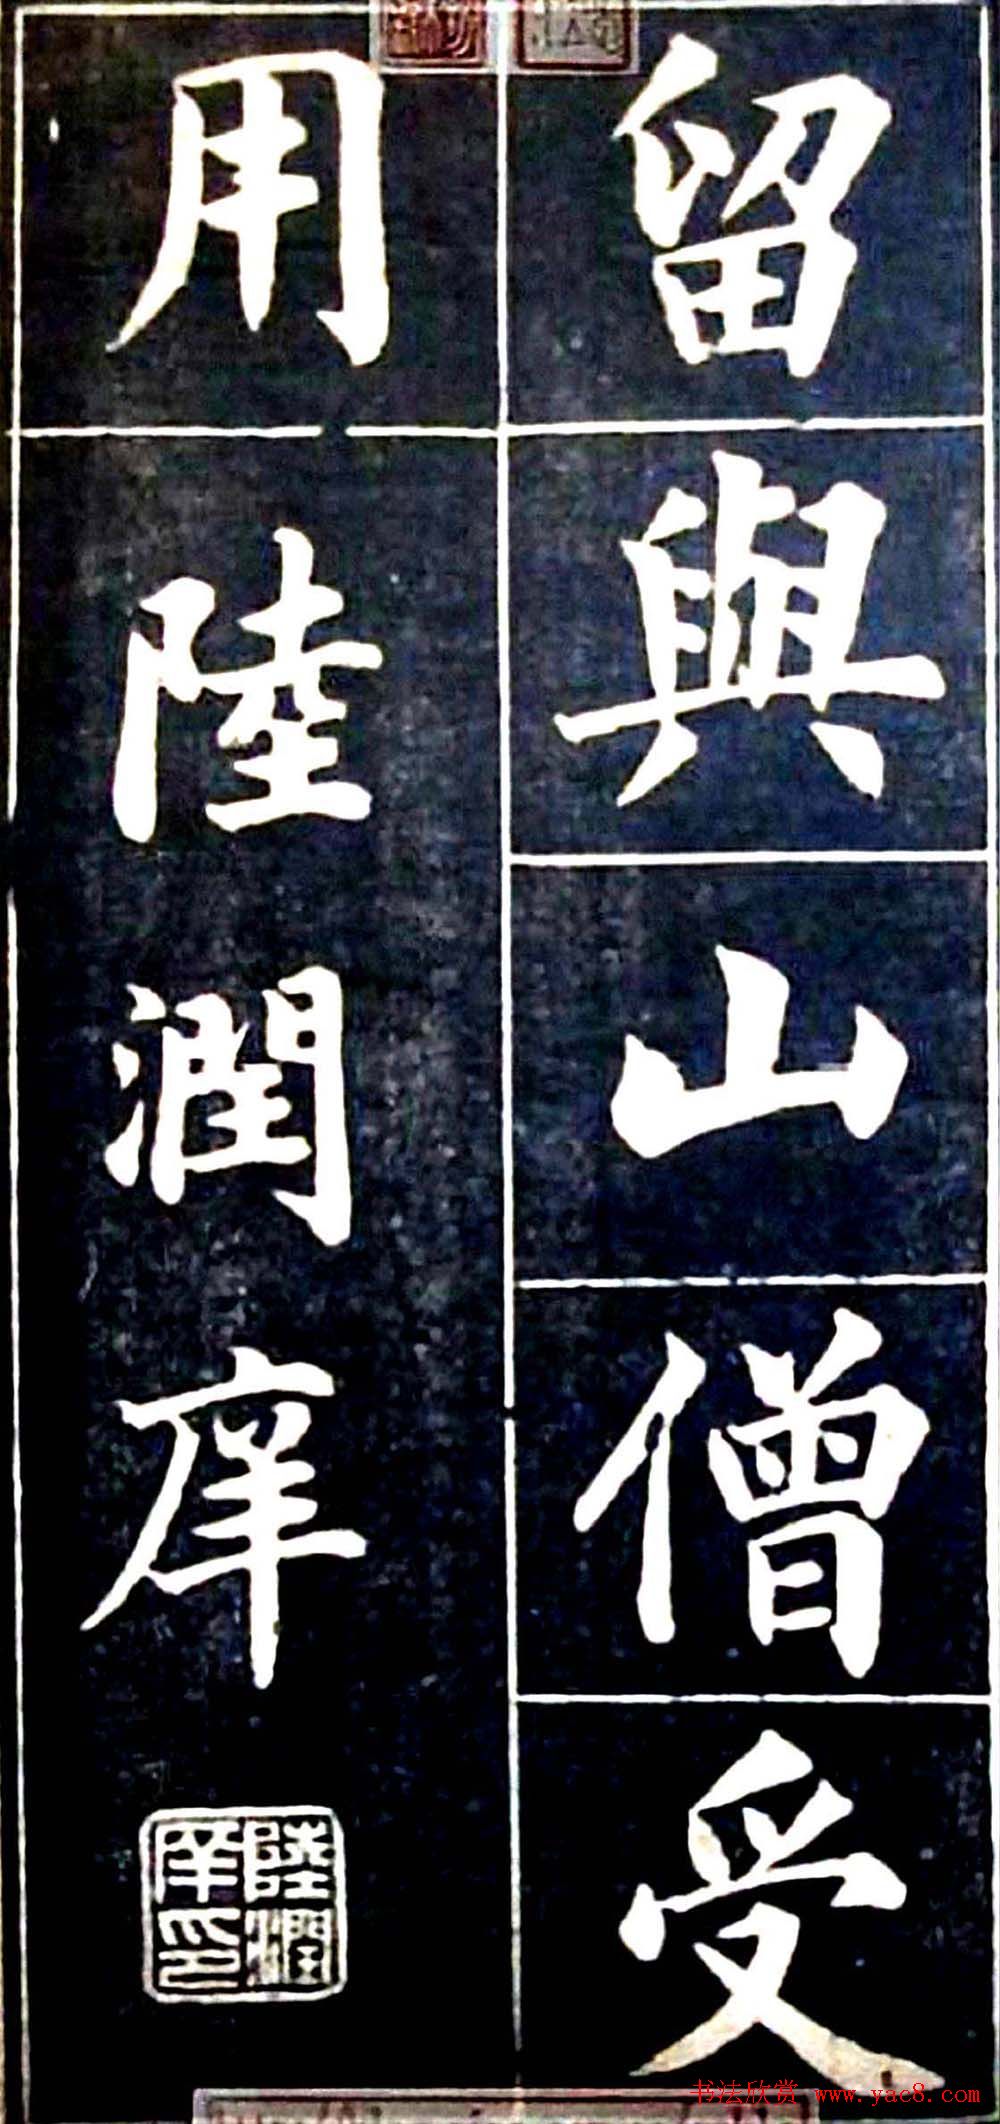 留與山僧受
用 陸潤庠
陸潤庠印
书法欣赏 www.yac8.com